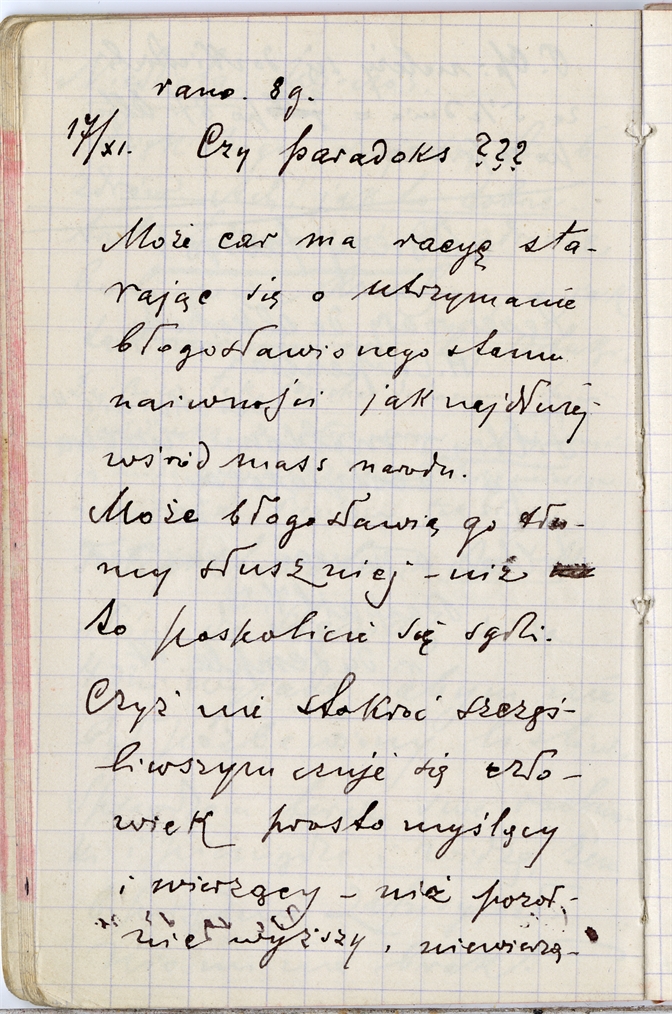 rano. 8g.
17/XI. Czy paradoks ???
Może car ma racyę sta-
rając się o utrzymanie
błogosławionego stanu
naiwności jak najdłużej
wśród mass narodu.
Może błogosławią go tłu-
my słuszniej – niż
to pospolicie się sądzi.
Czyż nie stokroć szczęś-
liwszym czuje się czło-
wiek prosto myślący
i wierzący – niż pozor-
nie wyższy, niewierzą-